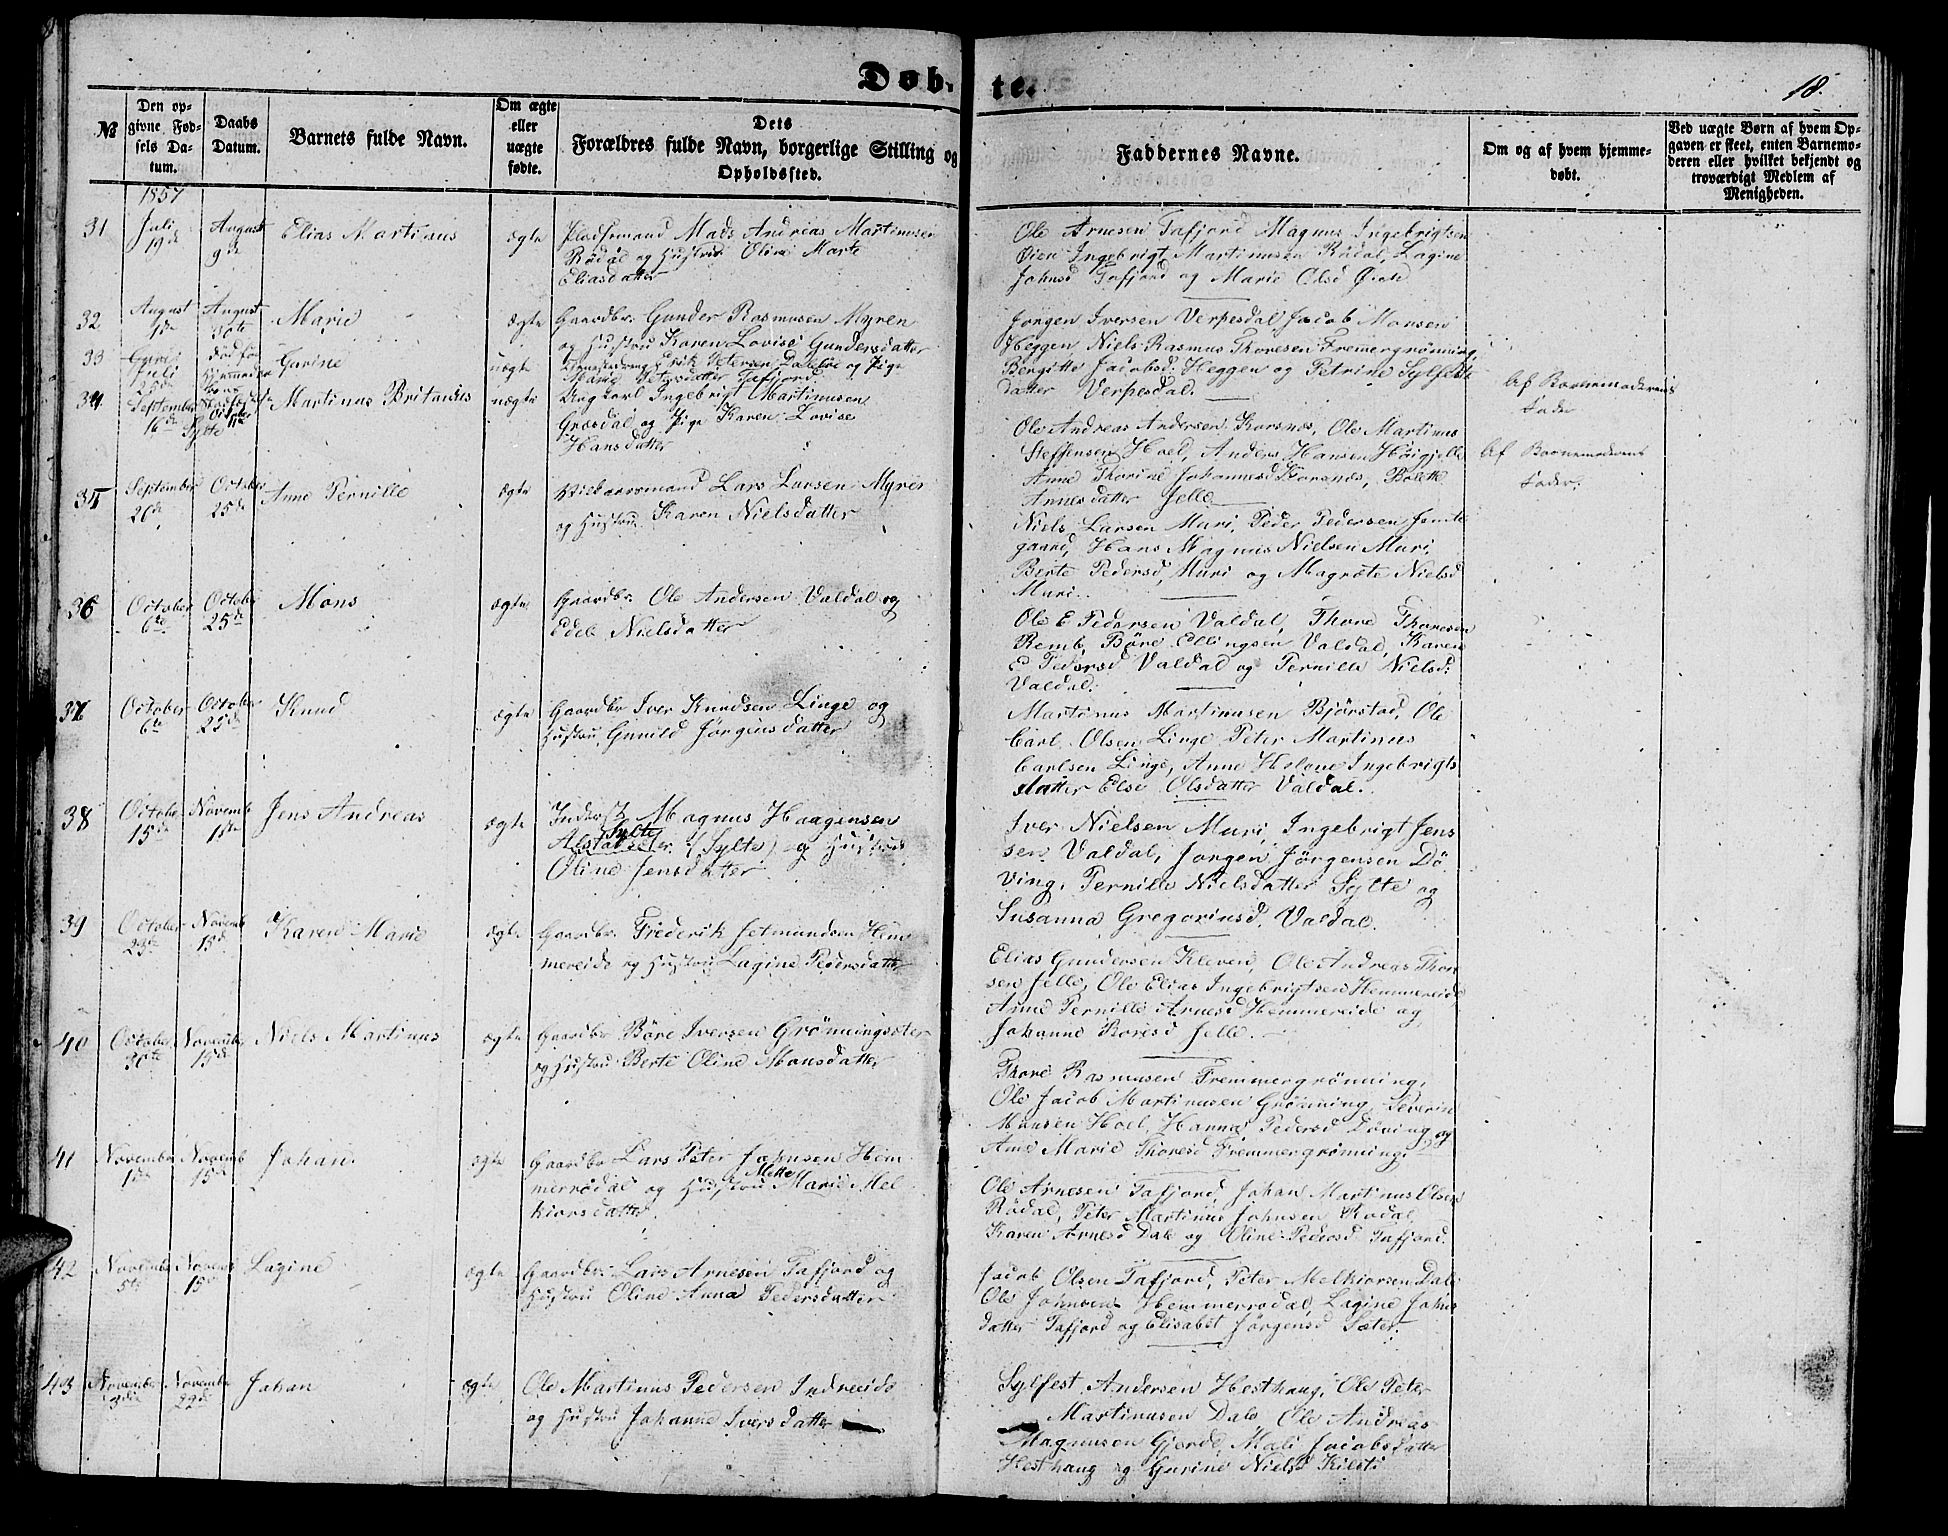 Døb- te.
18.
№
Den opgivne Fødsels Datum.
Daabs Datum.
Barnets fulde Navn.
Om ægte eller uægte fødte.
Dets Forældres fulde Navn, borgerlige Stilling og Opholdssted.
Faddernes Navne.
Om og af hvem hjemmedøbt.
Ved uægte Børn af hvem Opgaven er skeet, enten Barnemoderen eller hvilket bekjendt og troværdigt Medlem af Menigheden.
1857
31 Juli 19de August 9de Elias Martinus ægte Pladsmand Mads Andreas Martinusen
Rödal og Hustrue Oline Marte
Eliasdatter
Ole Arnesen Tafjord Magnus Ingebrigtsen
Øien Ingebrigt Martinusen Rödal, Lagine
Johnsd Tafjord og Marie Olsd Øien
32 August 1de August 30te Marie ægte Gaardbr. Gunder Rasmusen Myren
og Hustru Karen Lovise Gundersdatter
Jørgen Iversen Verpesdal Jacob Monsen
Heggen Niels Rasmus Thoresen Fremmergrönning,
Bergitte Jacobsd. Heggen og Petrine Sylfest
datter Verpesdal.
33 Juli 25de Gurine uægte
Marie Petersdatter Tafjord
Af Barnemoderens
Fader
34 September 16de October 11te Martinus Britanus uægte Ungkarl Ingebrigt Martinusen
Græsdal og Pige Karen Lovise
Hansdatter
Ole Andreas Andersen Korsnæs, Ole Martinus
Steffensen Hoel, Anders Hansen Höigjelle
Anne Thorine Johannesd Korsnæs, Bolette
Arnesdatter Jelle
Af Barnemoderens
Fader.
35 September 20de October 25de Anne Pernille ægte Lars Larsen Myren
og Hustru Karen Nielsdatter
Niels Larsen Muri, Peder Pedersen Jemte
gaard, Hans Magnus Nielsen Muri,
Berte Pedersd, Muri og Magrete Nielsd
Muri.
36 October 6te October 25de Mons ægte Gaardbr. Ole Andersen Valdal og
Edel Nielsdatter
Ole E Pedersen Valdal, Thore Thoresen
Remb, Böre Ellingsen Valdal, Karen
E Pedersd Valdal og Pernille Nielsd.
Valdal.
37 October 6te October 25de Knud ægte Gaardbr Iver Knudsen Linge og
Hustru, Gunild Jørginsdatter
Martinus Martinusen Bjørstad, Ole
Carl Olsen Linge, Peter Martinus
Carlsen Linge, Anne Helene Ingebrigts
datter Else Olsdatter Valdal.
38 October 15de Novemb 1ste Jens Andreas ægte Inderst Magnus Haagensen
Sylte
Alstadseter (Sylte) og Hustrue
Oline Jensdatter
Iver Nielsen Muri, Ingebrigt Jens
sen Valdal, Jørgen Jørgensen Dö
ving, Pernille Nielsdatter Sylte og
Susanna Gregoriusd. Valdal.
39 October 23de Novemb 15de Karen Marie ægte Gaardbr. Frederik Jetmundsen Hem
mereide og Hustru Lagine Pedersdatter
Elias Gundersen Kleven, Ole Andreas Thor
sen Jelle, Ole Elias Ingebrigtsen Hemmereide
Anne Pernille Arnesd Hemmereide og
Johanne Koresd Jelle.
40 October 30te November 15de Niels Martinus ægte Gaardbr Böre Iversen Grönningsæter
og Hustru Berte Oline Monsdatter
Thore Rasmusen Fremmergrönning,
Ole Jacob Martinusen Grönning, Severin
Monsen Hoel, Hanna Pedersd Döving og
Ane Marie Thoresd Fremmergrönning
41 November 1ste Novemb 15de Johan ægte Gaardbr Lars Peter Johnsen Hem
merrödal og Hustru Mette Marie Mel
kiorsdatter.
Ole Arnesen Tafjord, Johan Martinus Olsen
Rödal, Peter Martinus Johnsen Rödal,
Karen Arnesd Dale og Oline Pedersd Tafjord.
42 Novemb 5te Novemb 15de Lagine ægte Gaardbr. Lars Arnesen Tafjord og
Hustru Oline Anna Pedersdatter
Jacob Olsen Tafjord, Peter Melkiorsen Dale
Ole Johnsen Hemmerrödal, Lagine Johns
datter Tafjord og Elisabet Jørgensd Sæter.
43 November 3die Novembr 22de Johan ægte Ole Martinus Pedersen Indreeide
og Hustru Johanne Iversdatter
Sylfest Andersen Hesthaug, Ole Peter
Martinusen Dale, Ole Andreas
Magnusen Gjerde, Mali Jacobsdatter
Hesthaug og Gurine Nielsd Kilsti